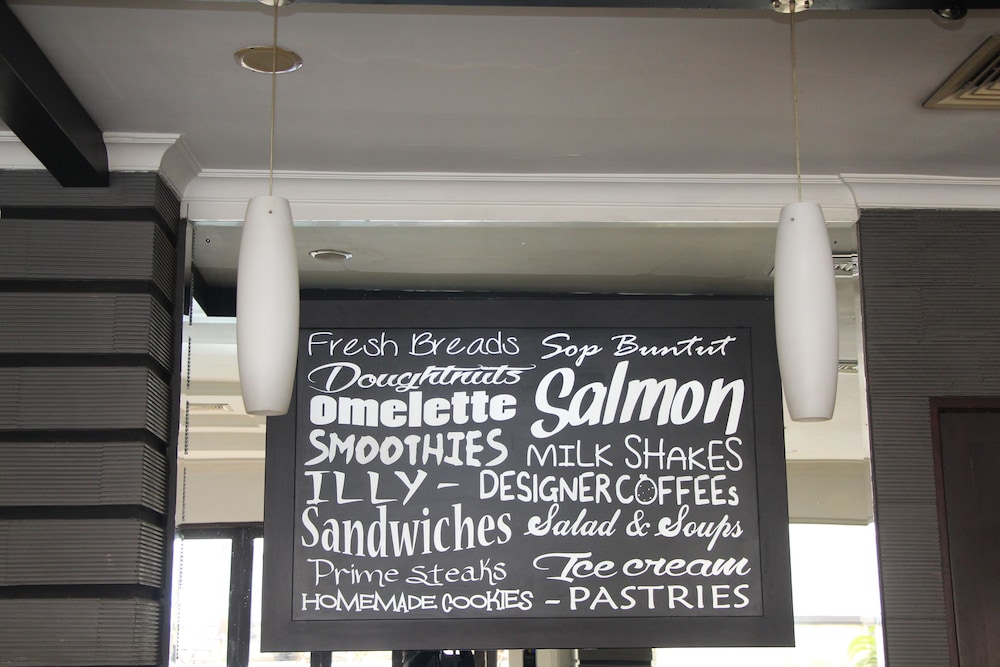 Fresh Breads
Doughtnuts
omelette
SMOOTHIES
ILLY - DESIGNER COFFEEs
Sandwiches
Prime steaks
HOMEMADE COOKIES - PASTRIES
Sop Buntut
Salmon
MILK SHAKES
Salad & Soups
Ice cream